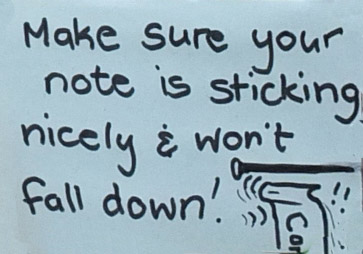 Make sure your
note is sticking
nicely & won't
fall down!
!!